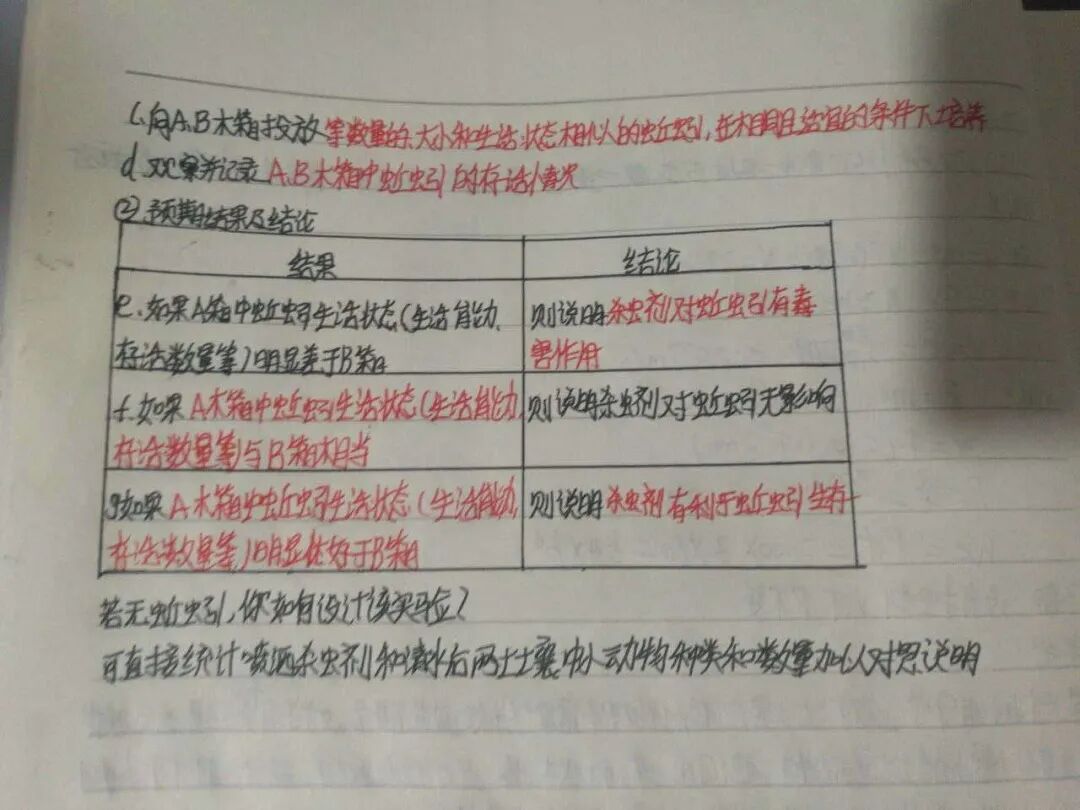 C.向A.B木箱投放等数量的大小和生活状态相似的蚯蚓,在相同且适宜的条件下培养
d.观察并记录A.B木箱中蚯蚓的存活情况
②.预期结果及结论
结果 结论
e.如果A箱中蚯蚓生活状态(生活能力、 则说明杀虫剂对蚯蚓有毒
存活数量等)明显差于B箱 害作用
f.如果A木箱中蚯蚓生活状态(生活能力, 则说明杀虫剂对蚯蚓无影响
存活数量等)与B箱相当
g如果A木箱中蚯蚓生活状态(生活能力, 则说明杀虫剂有利于蚯蚓生存
存活数量等)明显优好于B箱
若无蚯蚓,你如何设计该实验?
可直接统计喷洒杀虫剂和清水后两块土壤中小动物种类和数量加以对照说明